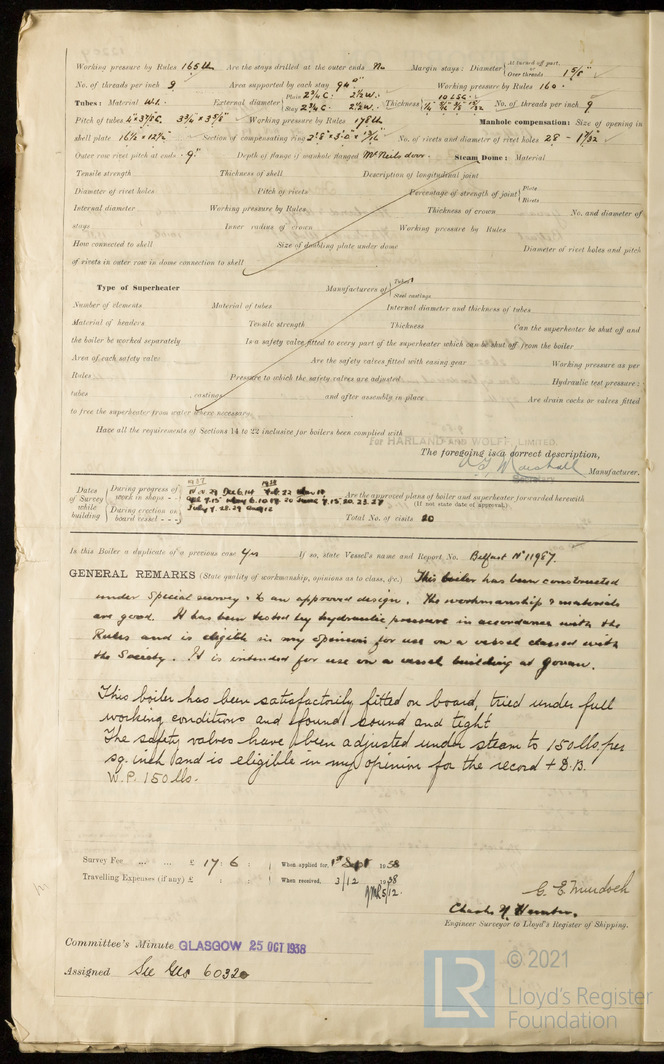 Working pressure by Rules 165 lb Are the stays drilled at the outer ends No Margin stays: Diameter { At turned off part, or Over threads 1 5/8"
No. of threads per inch 9 Area supported by each stay 94 □" Working pressure by Rules 160.
Tubes: Material W.I. External diameter { Plain 2 3/4 C. 2 1/2 W. Stay 2 3/4 C. 2 1/2 W. Thickness { 10 LSG. 1/4 5/16 No. of threads per inch 9
Pitch of tubes Working pressure by Rules 178 lb Manhole compensation: Size of opening in
shell plate 16 1/2" × 12 1/2" Section of compensating ring No. of rivets and diameter of rivet holes 28 - 1 5/32
Outer row rivet pitch at ends 9" Depth of flange if manhole flanged McNeils door. Steam Dome: Material
Tensile strength Thickness of shell Description of longitudinal joint
Diameter of rivet holes Pitch of rivets Percentage of strength of joint { Plate Rivets
Internal diameter Working pressure by Rules Thickness of crown No. and diameter of
stays Inner radius of crown Working pressure by Rules
How connected to shell Size of doubling plate under dome Diameter of rivet holes and pitch
of rivets in outer row in dome connection to shell
Type of Superheater Manufacturers of { Tubes Steel castings
Number of elements Material of tubes Internal diameter and thickness of tubes
Material of headers Tensile strength Thickness Can the superheater be shut off and
the boiler be worked separately Is a safety valve fitted to every part of the superheater which can be shut off from the boiler
Area of each safety valve Are the safety valves fitted with easing gear Working pressure as per
Rules Pressure to which the safety valves are adjusted Hydraulic test pressure:
tubes , castings and after assembly in place Are drain cocks or valves fitted
to free the superheater from water where necessary
Have all the requirements of Sections 14 to 22 inclusive for boilers been complied with
For HARLAND AND WOLFF, LIMITED.
The foregoing is a correct description,
Marshall Manufacturer.
Secretary
Dates of Survey while building { During progress of work in shops - - 1937 Nov. 29 Dec 6.14 1938 Feb 22 Mar
Are the approved plans of boiler and superheater forwarded herewith
(If not state date of approval.)
During erection on board vessel - - - July 7. 28. 29 Aug 12 Total No. of visits 20
Is this Boiler a duplicate of a previous case Yes If so, state Vessel's name and Report No. Belfast No 11987.
GENERAL REMARKS (State quality of workmanship, opinions as to class, &c.) This boiler has been constructed
under Special survey & to an approved design. The workmanship & materials
are good. It has been tested by hydraulic pressure in accordance with the
Rules and is eligible in my opinion for use on a vessel classed with
the Society. It is intended for use on a vessel building at Govan.
This boiler has been satisfactorily fitted on board, tried under full
working conditions and found sound and tight
The safety valves have been adjusted under steam to 150 lbs. per
sq. inch and is eligible in my opinion for the record + D.B.
W.P. 150 lbs.
Survey Fee ... ... £ 17 : 6 : When applied for, 1st Sept 1938
Travelling Expenses (if any) £ : : When received, 3/12 1938
5/12.
G. E. Murdoch
Charles Hunter.
Engineer Surveyor to Lloyd's Register of Shipping.
Committee's Minute GLASGOW 25 OCT 1938
Assigned See Gls 60320
LR © 2021
Lloyd's Register
Foundation